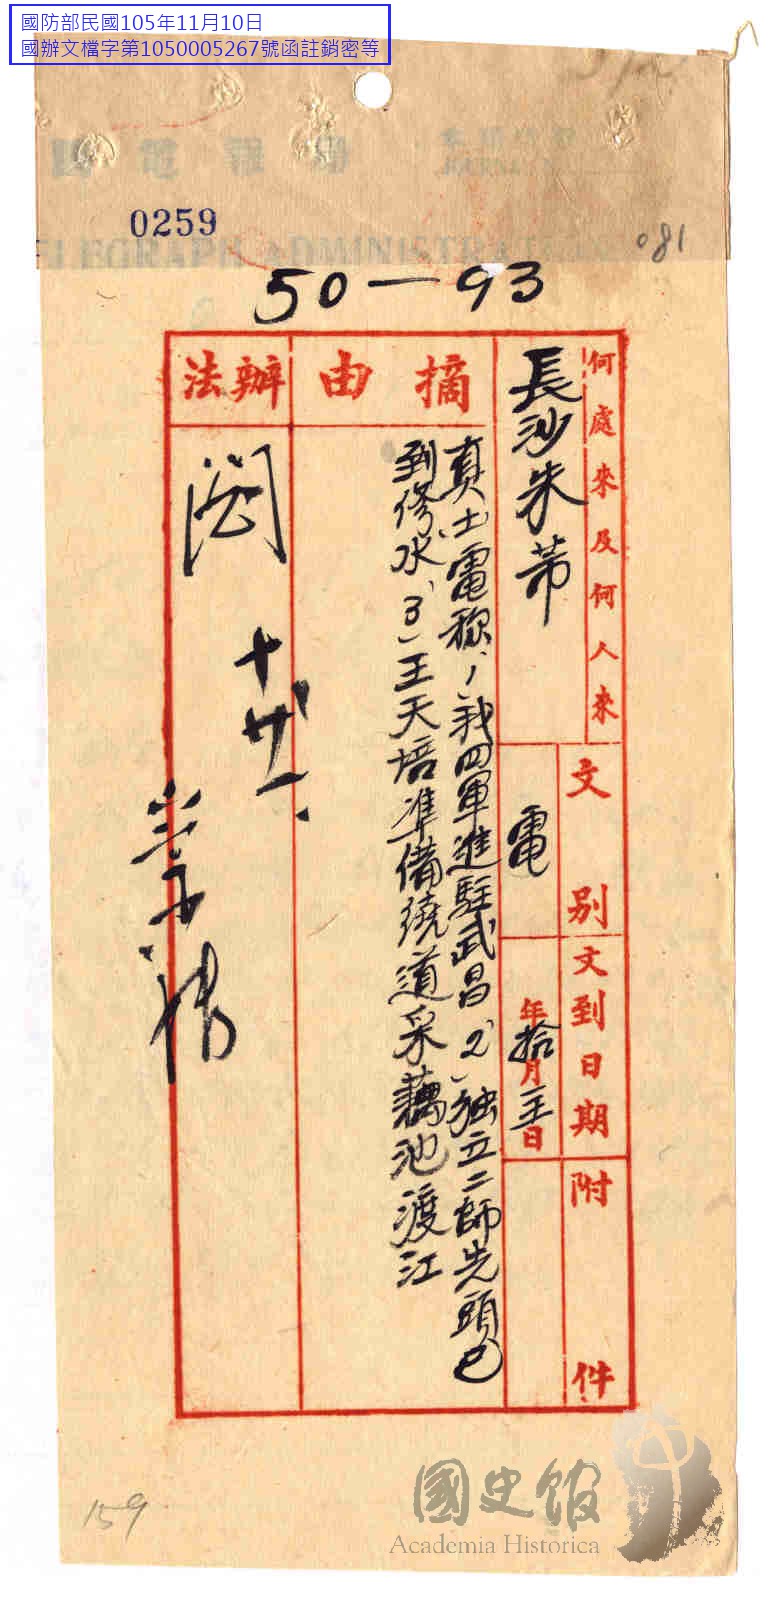 國防部民國105年11月10日
國辦文檔字第1050005267號函註銷密等
0259
081
50-93
何處來及何人來
長沙朱芾
文別
電
文到日期
年拾月
日
附件
摘由
真(士)電称1我四軍進駐武昌2)独立二師先頭已
到修水3)王天培準備繞道采藕池渡江
辦法
閱
十廿一
159
國史館
Academia Historica